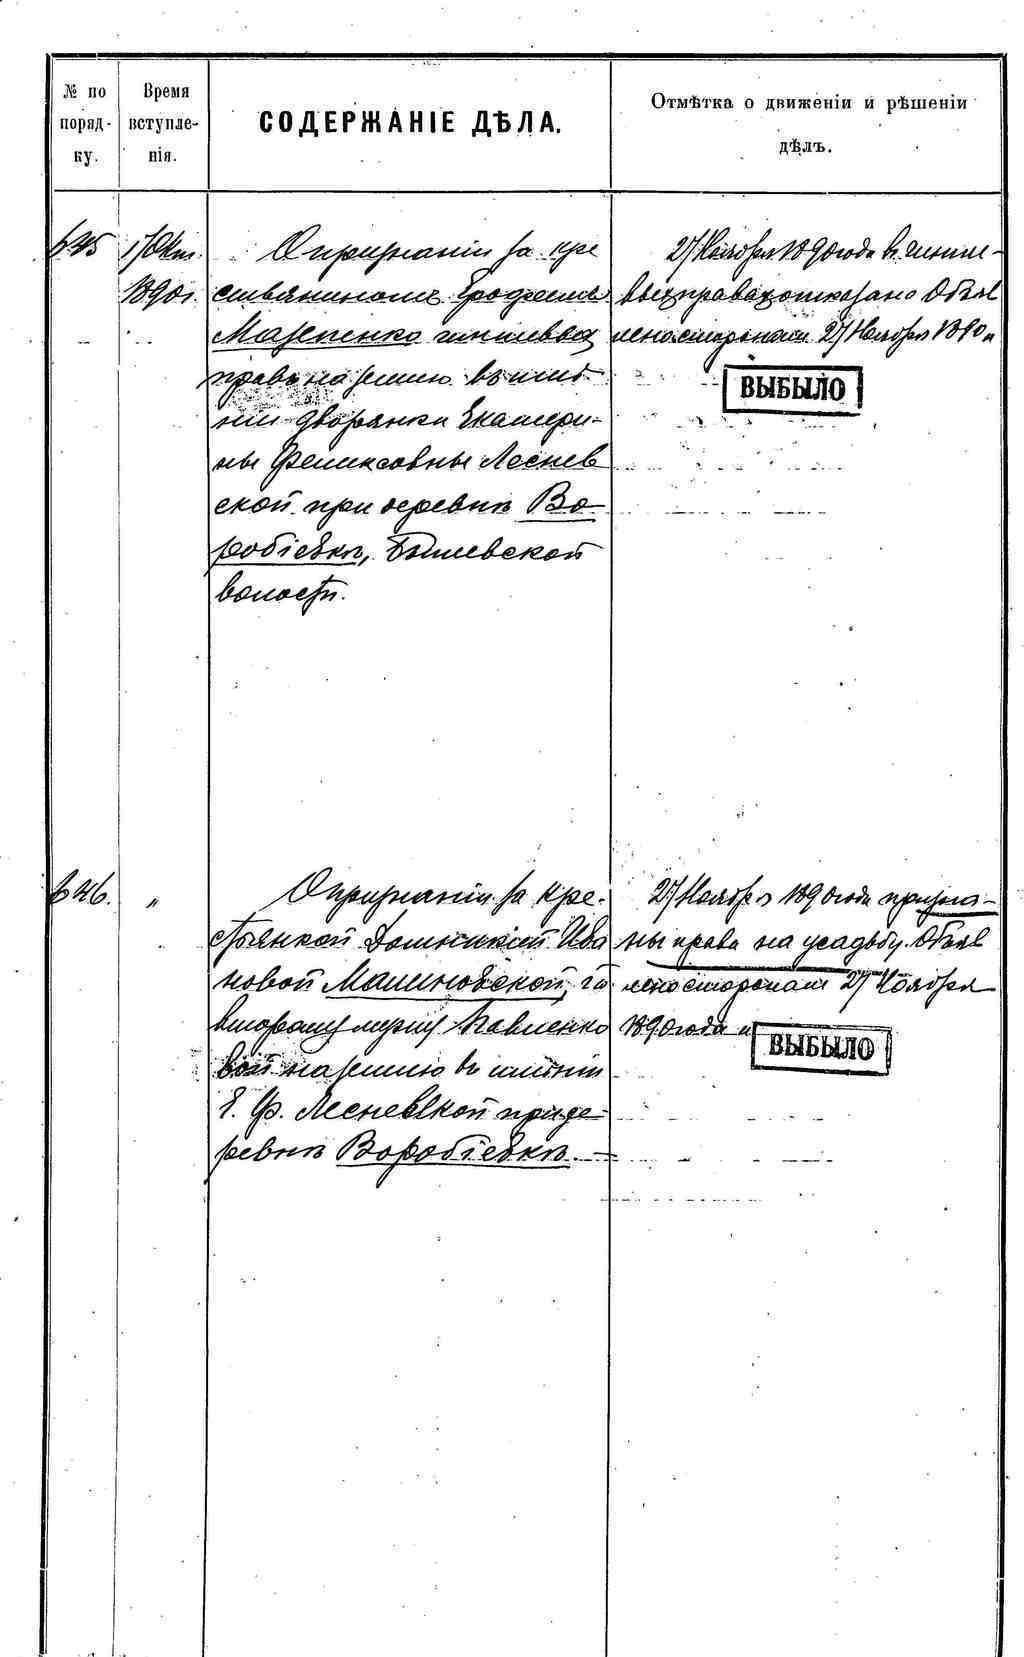 № по поряд-ку.
Время вступле-нія.
СОДЕРЖАНІЕ ДѢЛА.
Отмѣтка о движеніи и рѣшеніи
дѣлъ.
645
17 Окт.
1890 г.
О признаніи за кре
стьяниномъ Ерофеемъ
Мазепенко чиншевых
правъ на землю въ имѣ-
ніи дворянки Екатери-
ны Феликсовны Леснев
ской при деревнѣ Во-
робіевкѣ, Бышевской
волости.
27 Ноября 1890 года въ чинше-
выхъ правахъ отказано Объяв
лено сторонамъ 27 Ноября 1890 г.
ВЫБЫЛО
646.
"
О признаніи за кре-
стьянкой Домникией Ива
новой Малиновской,
второму мужу Павленко
вой на землю въ имѣніи
Е. Ф. Лесневской при де-
ревнѣ Воробіевкѣ.
27 Ноября 1890 года призна-
ны права на усадьбу. Объяв
лено сторонамъ 27 Ноября
1890 года
ВЫБЫЛО